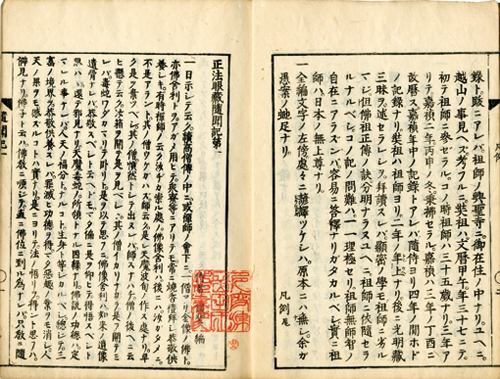 録ト跋ニアレバ祖師ノ興聖寺ニ御在住ノ中ナリ。コヘニ
越山ノ事見ヘス考フルニ奘祖ハ文暦甲午年三十七ニテ
初テ祖師ニ参ゼラル。コノ時祖師ハ三十五歳ナリ三年ア
リテ嘉禎二年丙申ノ冬秉拂セラル嘉禎ハ三年ノ丁酉ニ
故暦ス嘉禎年中ノ記録トアレバ随侍ヨリ四年ノ間ホト
ノ記録ナリ奘祖ハ祖師ヨリ二年ノ年上ナリ後ニ光明蔵
三昧ヲ述セラレシヲ拝讀スレバ顕密ノ學モ祖師ニ劣ル
マジ但佛祖正傳ノ訣分明ナラヌユヘニ祖師ニ依随セラ
ルナルベシコノ記ノ問難ハ一一理極セリ祖師無師智ノ
自在ニアラズンバ容易ニ答釋アリガタカルベシ實ニ祖
師ハ日本ノ無上尊ナリ
一全編文字ノ左傍處々ニ譯ヲツケシハ原本ニハ無シ余ガ
愚案ノ蛇足ナリ。
凡例尾
正法眼藏隨聞記第一
編
一日示シテ云ク續高僧傳ノ中ニ或禪師ノ會下ニ一僧アリ金像ノ佛ト
亦佛舎利トヲアガメ用ヒテ衆寮等ニアリテモ常ニ燒香禮拝シ恭敬供
養シキ。有時禪師ノ云ク汝ガ崇ル處ノ佛像舎利ハ後ニハ汝ガタメニ
不是アラント其ノ僧ウケガハズ師云ク是レ天魔波旬ノ作ス處ナリ早
ク是ヲ棄ツベシ其ノ僧憤然トシテ出ズレバ師スナハチ僧ノ後ヘニ云
ヒ懸テ云ク汝箱ヲ開テ是ヲ見ベシ其ノ僧イカリナガラ是ヲ開テミ
レバ毒蛇ワダカマリテ臥リ是ヲ以テ思フニ佛像舎利ハ如來ノ遺像
遺骨ナレバ恭敬スベシトイヘドモマタ偏ニ是ヲ仰ヒテ得悟スベシト
思ハバ還テ邪見ナリ天魔毒蛇ノ所領トナル因縁ナリ佛説ノ功徳ハ定
マレル事ナレバ人天ノ福分トナルコト生身ト等シカルベシ惣シテ三
寶ノ境界ヲ恭敬供養スレバ罪滅ビ功徳ヲ得テ惡趣ノ業ヲモ消シ人
天ノ果ヲモ感ズルコトハ實ナリ是ニヨリテ法ノ悟リヲ得タリト思フハ
僻見ナリ佛子ト云ハ佛教ニ順ジテ直ニ佛位ニ到ル為ナレバ只教ニ隨